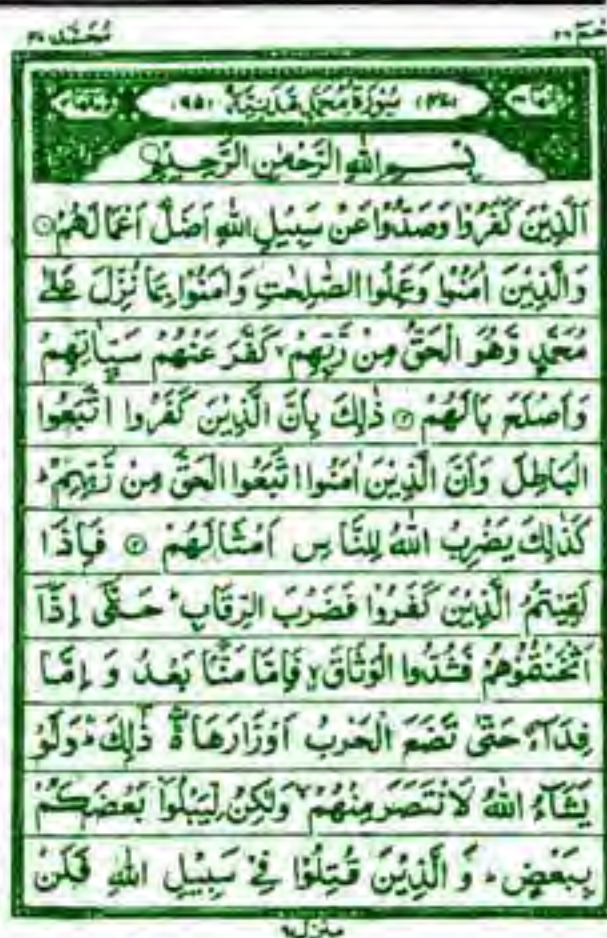 حٰمٓ ٢٦ مُحَمَّد ٤٧
اٰیاتها ٣٨ (٤٧) سُوْرَةُ مُحَمَّدٍ مَّدَنِيَّةٌ (٩٥) رکوعاتها ٤
بِسْمِ اللّٰهِ الرَّحْمٰنِ الرَّحِيْمِ
اَلَّذِيْنَ كَفَرُوْا وَصَدُّوْا عَنْ سَبِيْلِ اللّٰهِ اَضَلَّ اَعْمَالَهُمْ ۝١
وَالَّذِيْنَ اٰمَنُوْا وَعَمِلُوا الصّٰلِحٰتِ وَاٰمَنُوْا بِمَا نُزِّلَ عَلٰى
مُحَمَّدٍ وَّهُوَ الْحَقُّ مِنْ رَّبِّهِمْ ۙ كَفَّرَ عَنْهُمْ سَيِّاٰتِهِمْ
وَاَصْلَحَ بَالَهُمْ ۝٢ ذٰلِكَ بِاَنَّ الَّذِيْنَ كَفَرُوا اتَّبَعُوا
الْبَاطِلَ وَاَنَّ الَّذِيْنَ اٰمَنُوا اتَّبَعُوا الْحَقَّ مِنْ رَّبِّهِمْ ؕ
كَذٰلِكَ يَضْرِبُ اللّٰهُ لِلنَّاسِ اَمْثَالَهُمْ ۝٣ فَاِذَا
لَقِيْتُمُ الَّذِيْنَ كَفَرُوْا فَضَرْبَ الرِّقَابِ ؕ حَتّٰۤى اِذَاۤ
اَثْخَنْتُمُوْهُمْ فَشُدُّوا الْوَثَاقَ ۙ فَاِمَّا مَنًّاۢ بَعْدُ وَ اِمَّا
فِدَآءً حَتّٰى تَضَعَ الْحَرْبُ اَوْزَارَهَا ۛ۬ ذٰلِكَ ۛؕ وَلَوْ
يَشَآءُ اللّٰهُ لَانْتَصَرَ مِنْهُمْ ۙ وَلٰكِنْ لِّيَبْلُوَا۠ بَعْضَكُمْ
بِبَعْضٍ ؕ وَ الَّذِيْنَ قُتِلُوْا فِيْ سَبِيْلِ اللّٰهِ فَلَنْ
منزل ٦